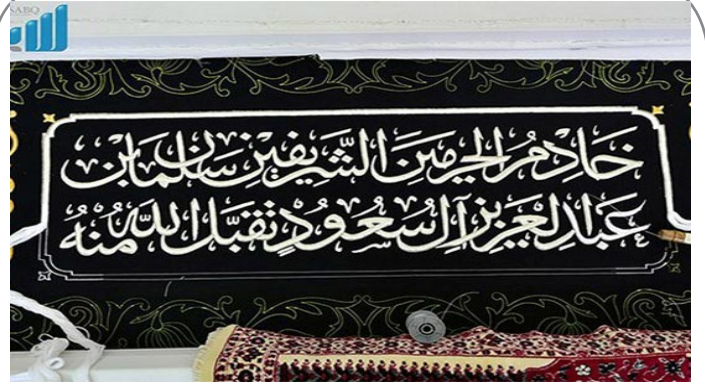 SABQ
خَادِمُ الحَرَمَينِ الشَّرِيفَينِ سَلمَان بن
عَبدالعَزِيز آل سُعُودٍ تَقَبَّلَ اللهُ مِنهُ